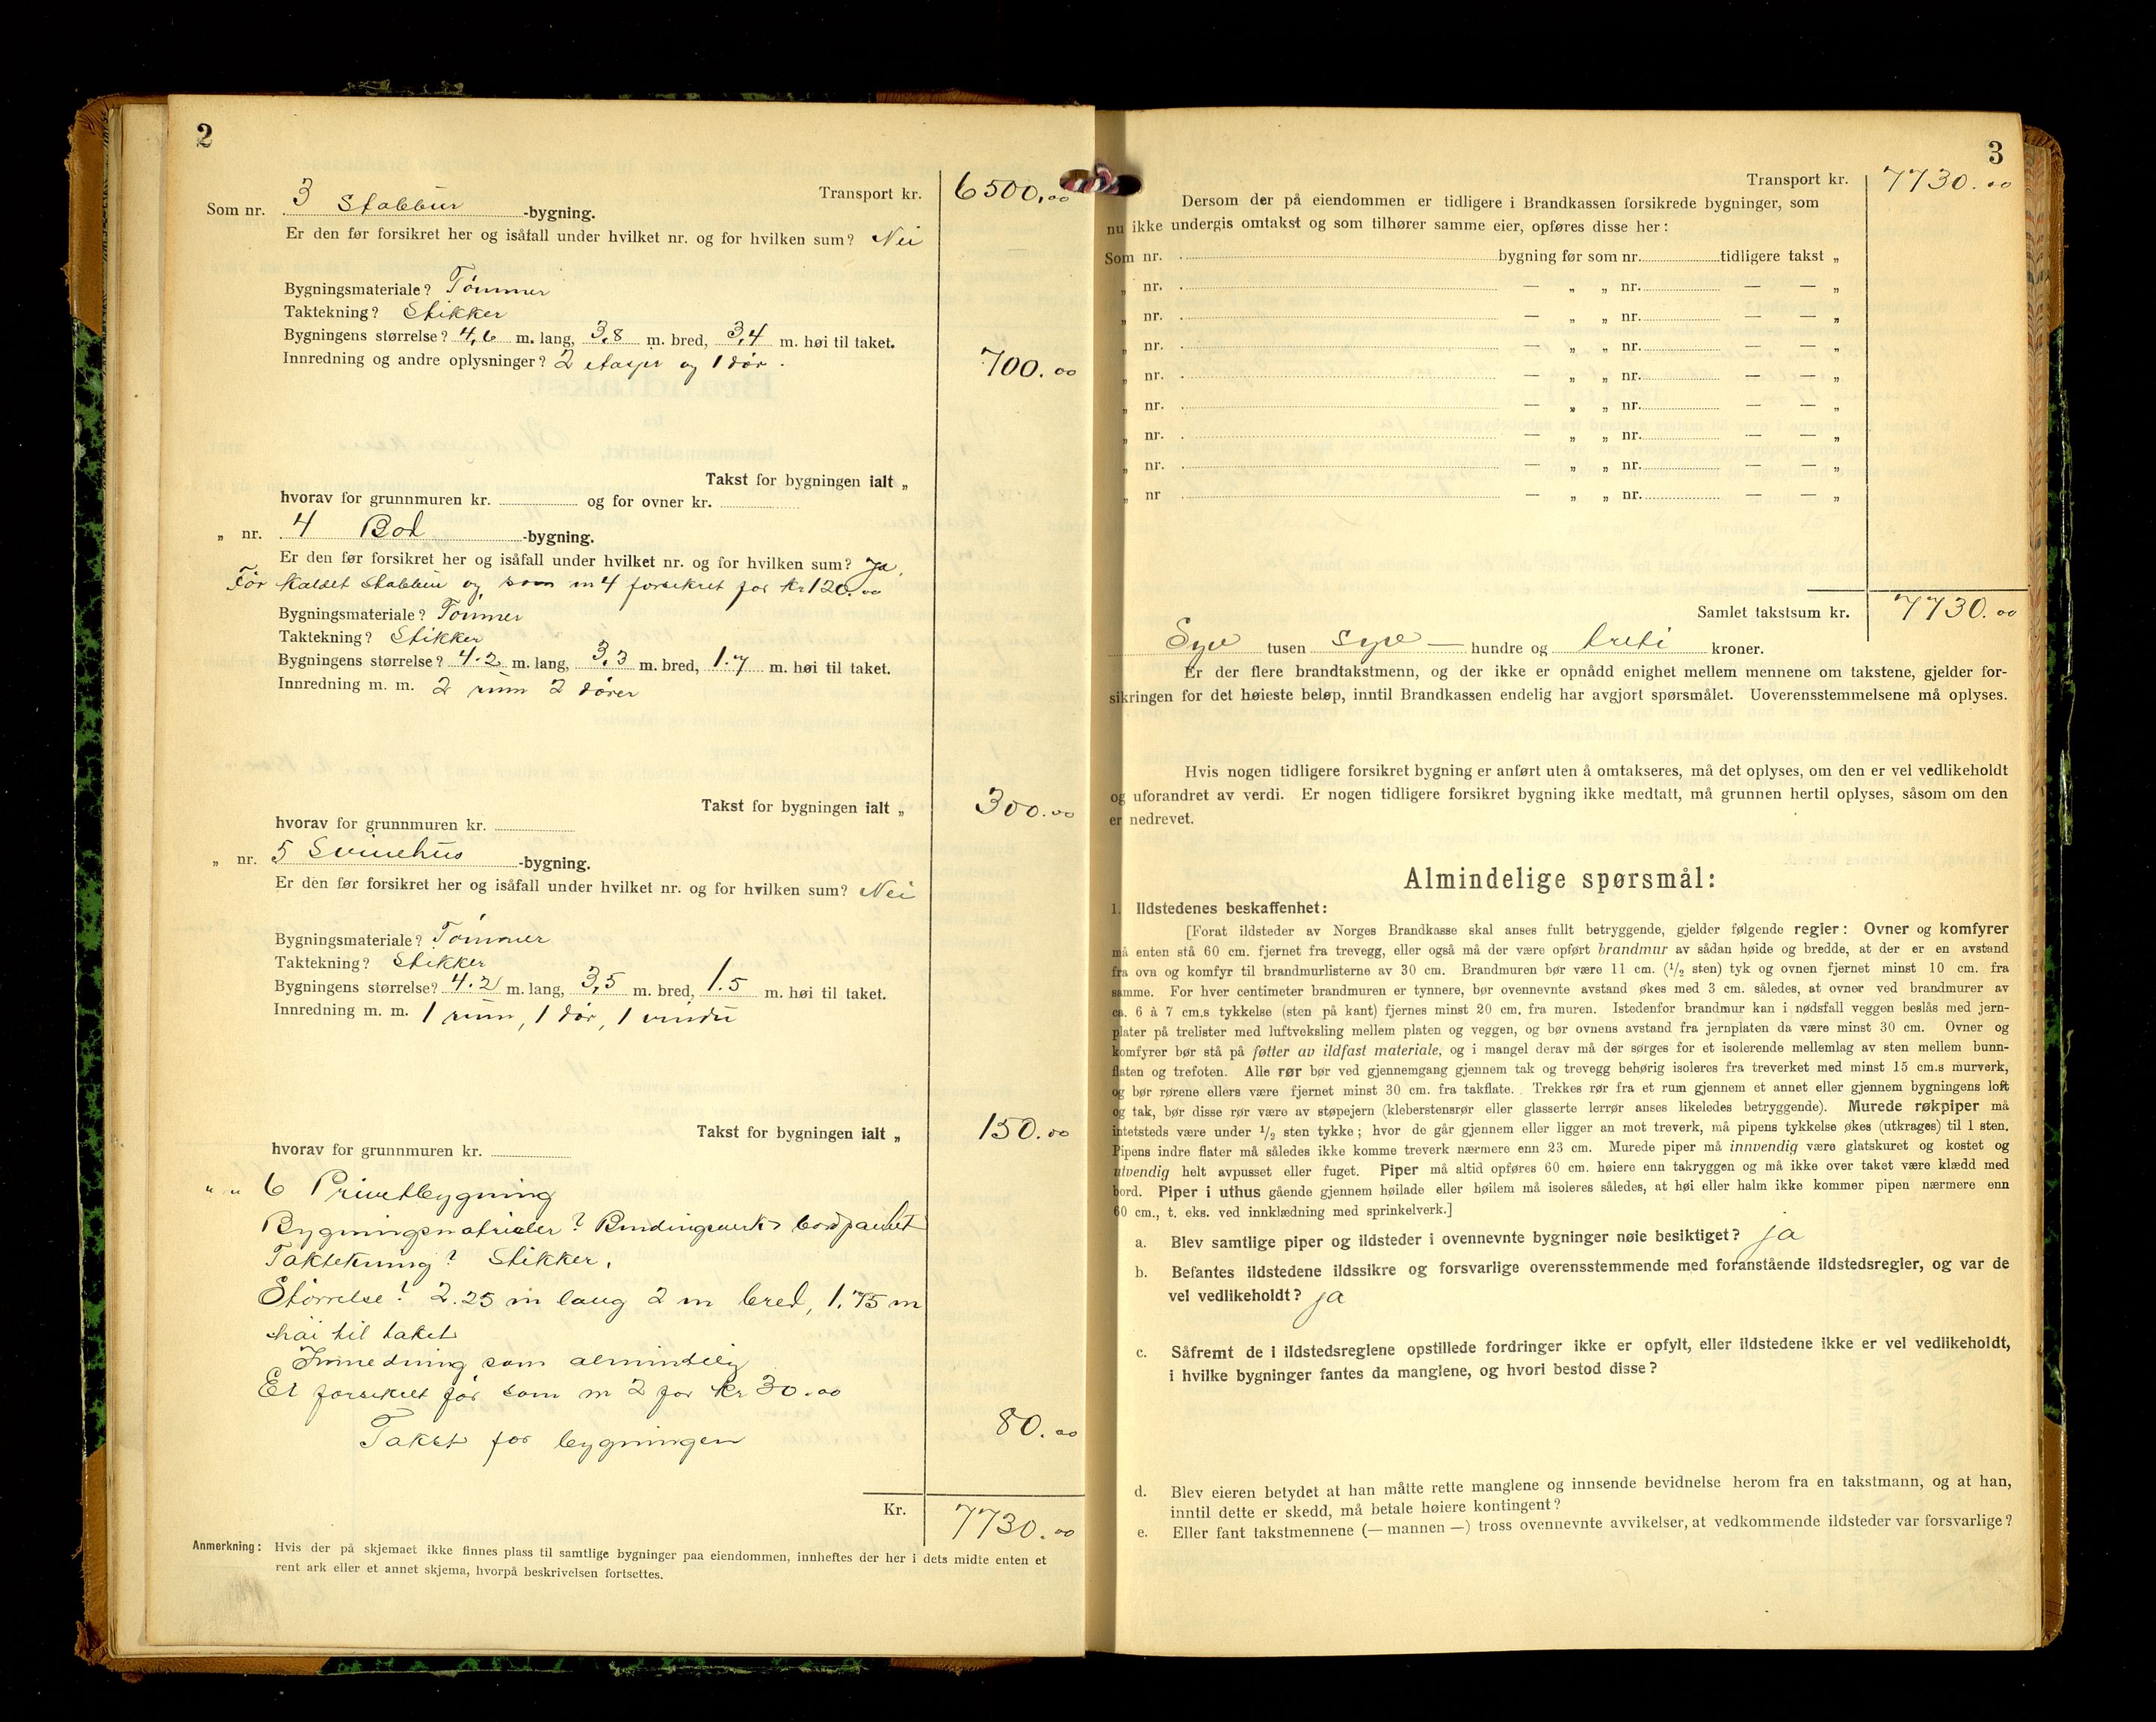 2
Transport kr. 6500.00
Som nr. 3 Stabbur -bygning.
Er den før forsikret her og isåfall under hvilket nr. og for hvilken sum? Nei
Bygningsmateriale? Tømmer
Taktekning? Stikker
Bygningens størrelse? 4,6 m. lang, 3,8 m. bred, 3,4 m. høi til taket.
Innredning og andre oplysninger? 2 etasjer og 1 dør. 700.00
Takst for bygningen ialt „
hvorav for grunnmuren kr. og for ovner kr.
„ nr. 4 Bod -bygning.
Er den før forsikret her og isåfall under hvilket nr. og for hvilken sum? Ja,
Før kaldet stabbur og som nr 4 forsikret for kr 120.00
Bygningsmateriale? Tømmer
Taktekning? Stikker
Bygningens størrelse? 4.2 m. lang, 3,3 m. bred, 1.7 m. høi til taket.
Innredning m. m. 2 rum 2 dører
Takst for bygningen ialt „ 300.00
hvorav for grunnmuren kr.
„ nr. 5 Svinehus -bygning.
Er den før forsikret her og isåfall under hvilket nr. og for hvilken sum? Nei
Bygningsmateriale? Tømmer
Taktekning? Stikker
Bygningens størrelse? 4.2 m. lang, 3,5 m. bred, 1.5 m. høi til taket.
Innredning m. m. 1 rum, 1 dør, 1 vindu
Takst for bygningen ialt „ 150.00
hvorav for grunnmuren kr.
„ „ 6 Privetbygning
Bygningsmatrialer? Bindingsverk bordpanelet
Taktekning? Stikker.
Størrelse? 2.25 m lang 2 m bred, 1.75 m
høi til taket
Innredning som almindelig
Er forsikret før som nr 2 for kr 30.00
Takst for bygningen 80.00
Kr. 7730.00
Anmerkning: Hvis der på skjemaet ikke finnes plass til samtlige bygninger paa eiendommen, innheftes der her i dets midte enten et
rent ark eller et annet skjema, hvorpå beskrivelsen fortsettes.
3
Transport kr. 7730.00
Dersom der på eiendommen er tidligere i Brandkassen forsikrede bygninger, som
nu ikke undergis omtakst og som tilhører samme eier, opføres disse her:
Som nr. bygning før som nr. tidligere takst „
„ nr. — „ „ nr. — — „
„ nr. — „ „ nr. — — „
„ nr. — „ „ nr. — — „
„ nr. — „ „ nr. — — „
„ nr. — „ „ nr. — — „
„ nr. — „ „ nr. — — „
„ nr. — „ „ nr. — — „
„ nr — „ „ nr. — — „
Samlet takstsum kr. 7730.00
Syv tusen syv — hundre og treti kroner.
Er der flere brandtakstmenn, og der ikke er opnådd enighet mellem mennene om takstene, gjelder for-
sikringen for det høieste beløp, inntil Brandkassen endelig har avgjort spørsmålet. Uoverensstemmelsene må oplyses.
Hvis nogen tidligere forsikret bygning er anført uten å omtakseres, må det oplyses, om den er vel vedlikeholdt
og uforandret av verdi. Er nogen tidligere forsikret bygning ikke medtatt, må grunnen hertil oplyses, såsom om den
er nedrevet.
Almindelige spørsmål:
1. Ildstedenes beskaffenhet:
[Forat ildsteder av Norges Brandkasse skal anses fullt betryggende, gjelder følgende regler: Ovner og komfyrer
må enten stå 60 cm. fjernet fra trevegg, eller også må der være opført brandmur av sådan høide og bredde, at der er en avstand
fra ovn og komfyr til brandmurlisterne av 30 cm. Brandmuren bør være 11 cm. (1/2 sten) tyk og ovnen fjernet minst 10 cm. fra
samme. For hver centimeter brandmuren er tynnere, bør ovennevnte avstand økes med 3 cm. således, at ovner ved brandmurer av
ca. 6 à 7 cm.s tykkelse (sten på kant) fjernes minst 20 cm. fra muren. Istedenfor brandmur kan i nødsfall veggen beslås med jern-
plater på trelister med luftveksling mellem platen og veggen, og bør ovnens avstand fra jernplaten da være minst 30 cm. Ovner og
komfyrer bør stå på føtter av ildfast materiale, og i mangel derav må der sørges for et isolerende mellemlag av sten mellem bunn-
flaten og trefoten. Alle rør bør ved gjennemgang gjennem tak og trevegg behørig isoleres fra treverket med minst 15 cm.s murverk,
og bør rørene ellers være fjernet minst 30 cm. fra takflate. Trekkes rør fra et rum gjennem et annet eller gjennem bygningens loft
og tak, bør disse rør være av støpejern (kleberstensrør eller glasserte lerrør anses likeledes betryggende). Murede røkpiper må
intetsteds være under 1/2 sten tykke; hvor de går gjennem eller ligger an mot treverk, må pipens tykkelse økes (utkrages) til 1 sten.
Pipens indre flater må således ikke komme treverk nærmere enn 23 cm. Murede piper må innvendig være glatskuret og kostet og
utvendig helt avpusset eller fuget. Piper må altid opføres 60 cm. høiere enn takryggen og må ikke over taket være klædd med
bord. Piper i uthus gående gjennem høilade eller høilem må isoleres således, at høi eller halm ikke kommer pipen nærmere enn
60 cm., t. eks. ved innklædning med sprinkelverk.]
a. Blev samtlige piper og ildsteder i ovennevnte bygninger nøie besiktiget? ja
b. Befantes ildstedene ildssikre og forsvarlige overensstemmende med foranstående ildstedsregler, og var de
vel vedlikeholdt? ja
c. Såfremt de i ildstedsreglene opstillede fordringer ikke er opfylt, eller ildstedene ikke er vel vedlikeholdt,
i hvilke bygninger fantes da manglene, og hvori bestod disse?
d. Blev eieren betydet at han måtte rette manglene og innsende bevidnelse herom fra en takstmann, og at han,
inntil dette er skedd, må betale høiere kontingent?
e. Eller fant takstmennene (— mannen —) tross ovennevnte avvikelser, at vedkommende ildsteder var forsvarlige?